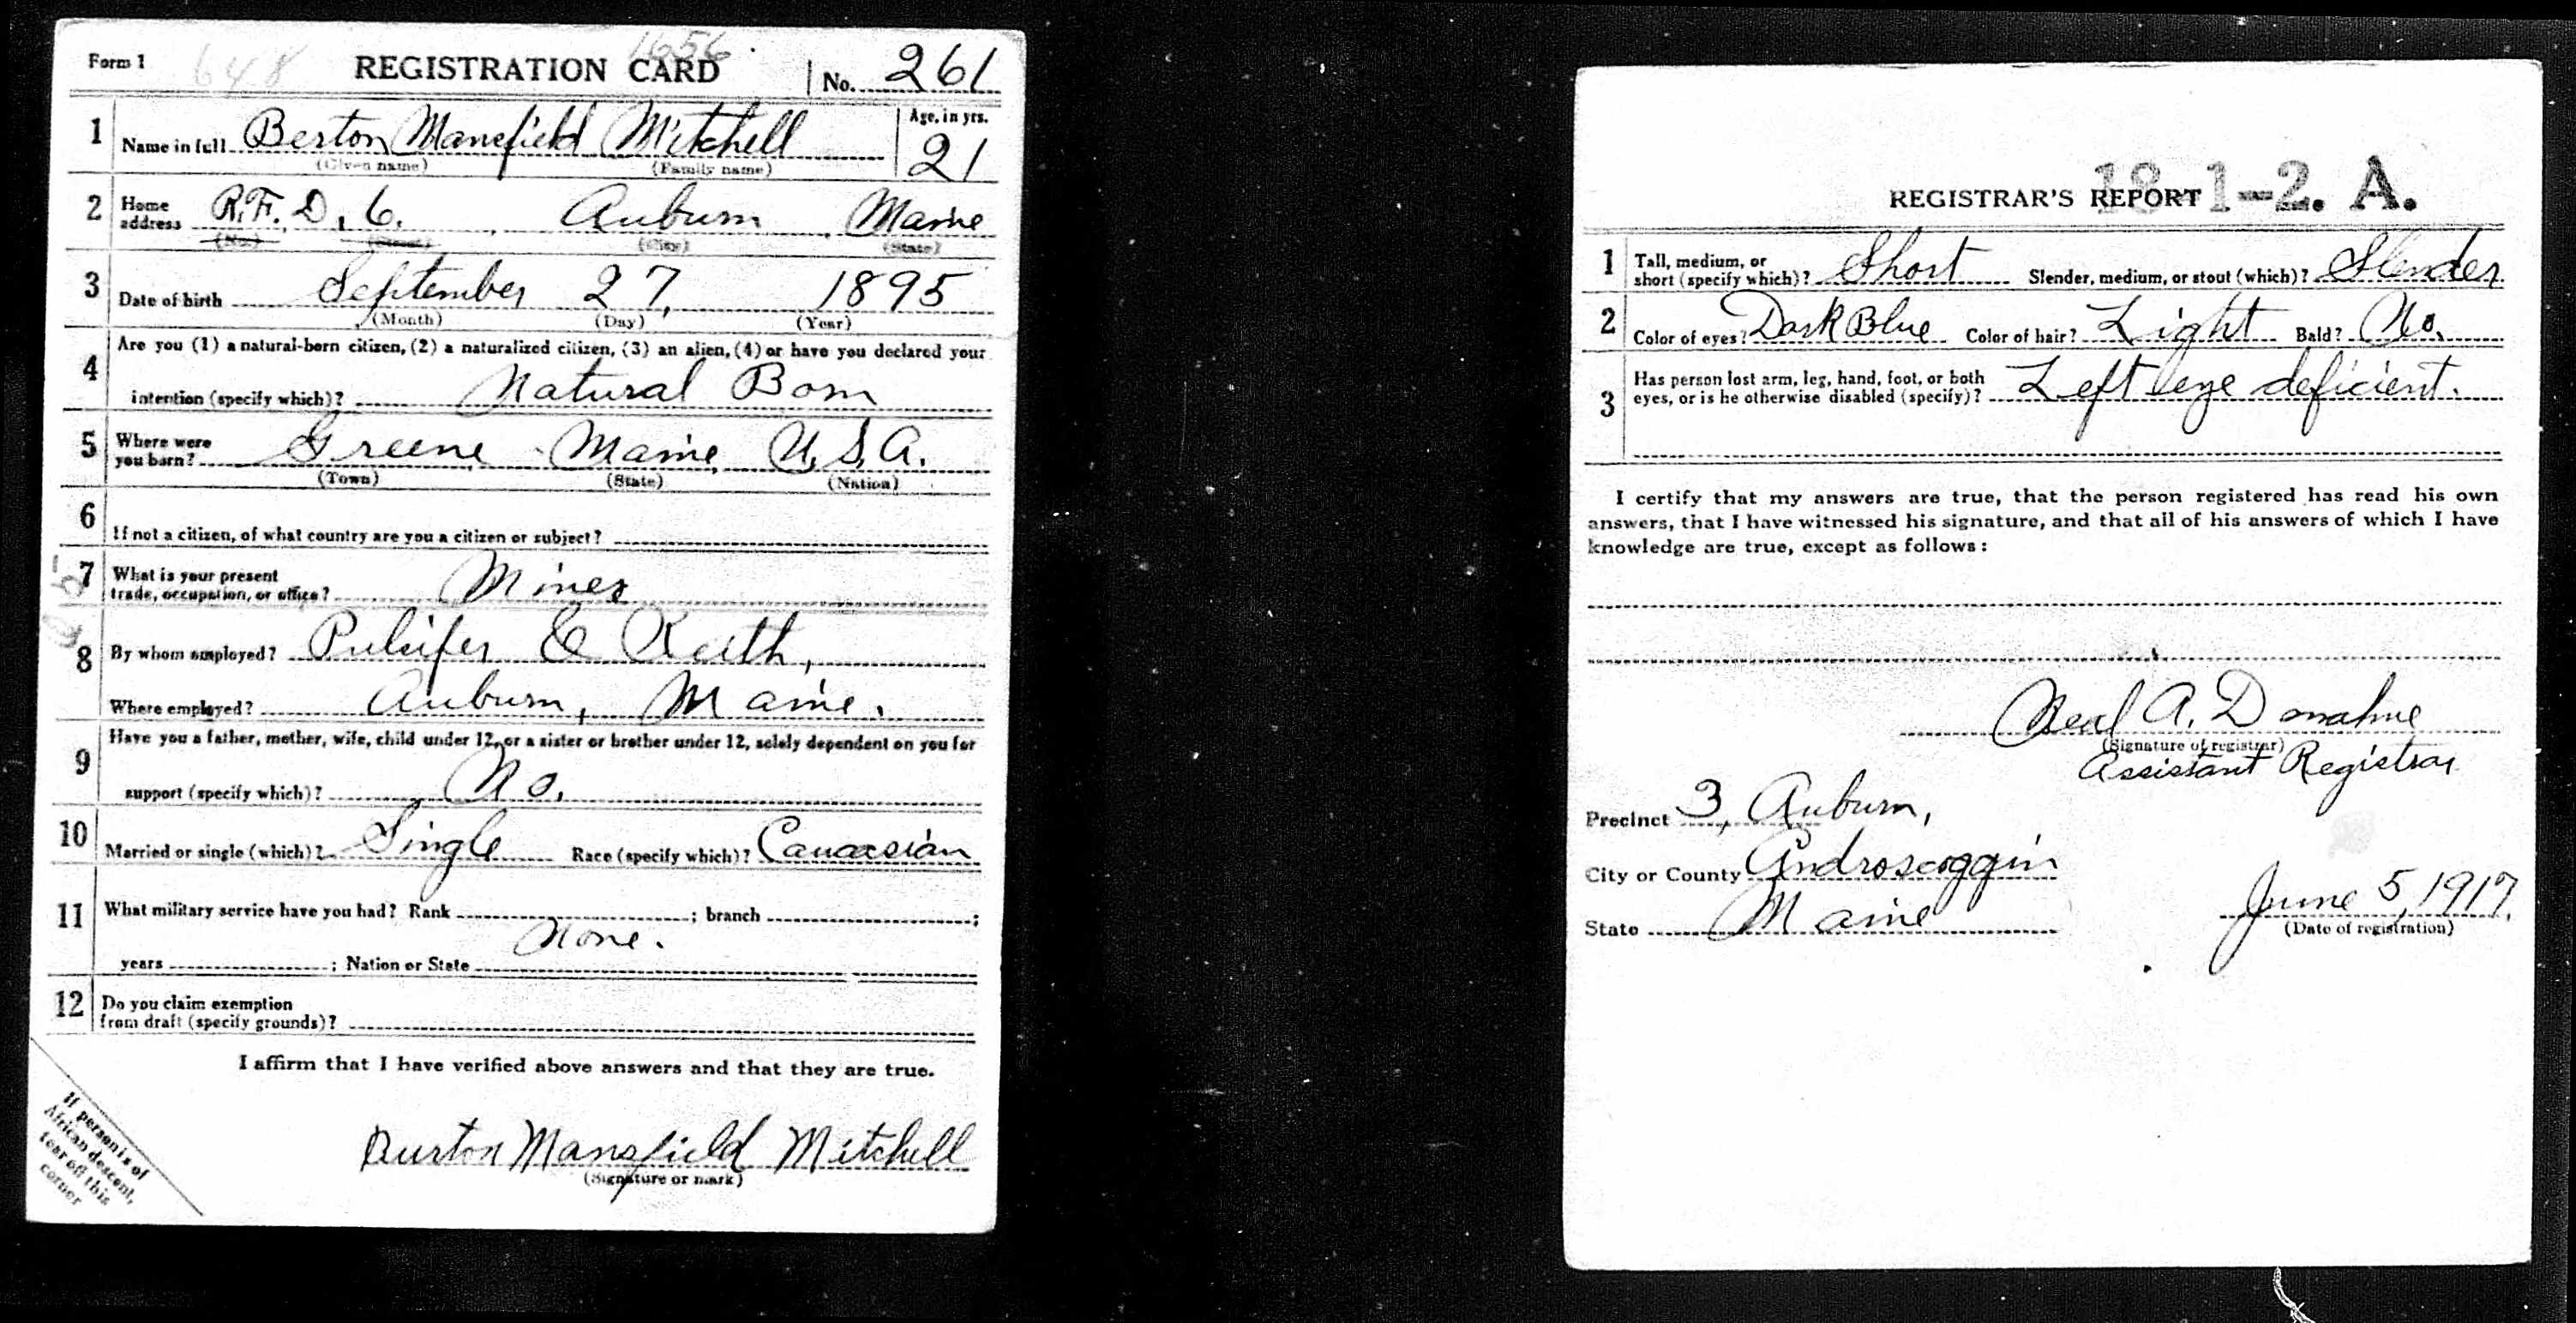 Form 1 648 REGISTRATION CARD 1656 No. 261
1 Name in full Berton Mansfield Mitchell Age, in yrs. 21
(Given name) (Family name)
2 Home address R.F.D. 6. Auburn Maine
(No.) (Street) (City) (State)
3 Date of birth September 27, 1895
(Month) (Day) (Year)
4 Are you (1) a natural-born citizen, (2) a naturalized citizen, (3) an alien, (4) or have you declared your
intention (specify which)? Natural Born
5 Where were you born? Greene Maine U.S.A.
(Town) (State) (Nation)
6 If not a citizen, of what country are you a citizen or subject?
7 What is your present
trade, occupation, or office? Miner
8 By whom employed? Pulsifer & Keith,
Where employed? Auburn, Maine.
9 Have you a father, mother, wife, child under 12, or a sister or brother under 12, solely dependent on you for
support (specify which)? No.
10 Married or single (which)? Single Race (specify which)? Caucasian
11 What military service have you had? Rank ; branch ;
None.
years ; Nation or State
12 Do you claim exemption
from draft (specify grounds)?
I affirm that I have verified above answers and that they are true.
Burton Mansfield Mitchell
(Signature or mark)
If person is of
African descent,
tear off this
corner
18-1-2. A.
REGISTRAR'S REPORT
1 Tall, medium, or
short (specify which)? Short Slender, medium, or stout (which)? Slender
2 Color of eyes? Dark Blue Color of hair? Light Bald? No.
3 Has person lost arm, leg, hand, foot, or both
eyes, or is he otherwise disabled (specify)? Left eye deficient.
I certify that my answers are true, that the person registered has read his own
answers, that I have witnessed his signature, and that all of his answers of which I have
knowledge are true, except as follows:
Neal A. Donahue
(Signature of registrar)
Assistant Registrar
Precinct 3, Auburn,
City or County Androscoggin
State Maine June 5, 1917.
(Date of registration)